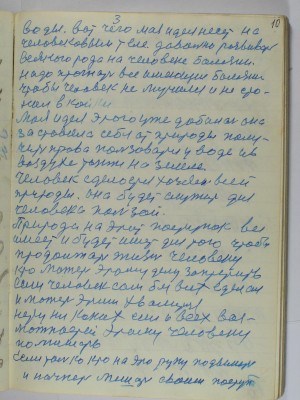 3
10
воды. вот чего моя идея несет на
человеческом теле давать развивать
всякого рода на человеке болезни.
надо прогнать все имеющии болезни
чтобы человек не мучился и не сто-
нал в койки
Моя идея этого уже добилась она
заставила себя от природы полу-
чить права пользоваться водой и в
воздухе жить на земле.
Человек сделается хозяин всей
природы. она будет служить для
человека пользой.
Природа на этот поступок все
имеет и будет иметь для того чтобы
продолжать жизнь человеку
Кто может этому делу запретить
если человек сам бы всё сделал
и может этим хвалиться
нету ни каких сил и всех воз-
можностей этому человеку
помешать
Если только кто на это руку подымет
и начнет мешать своим